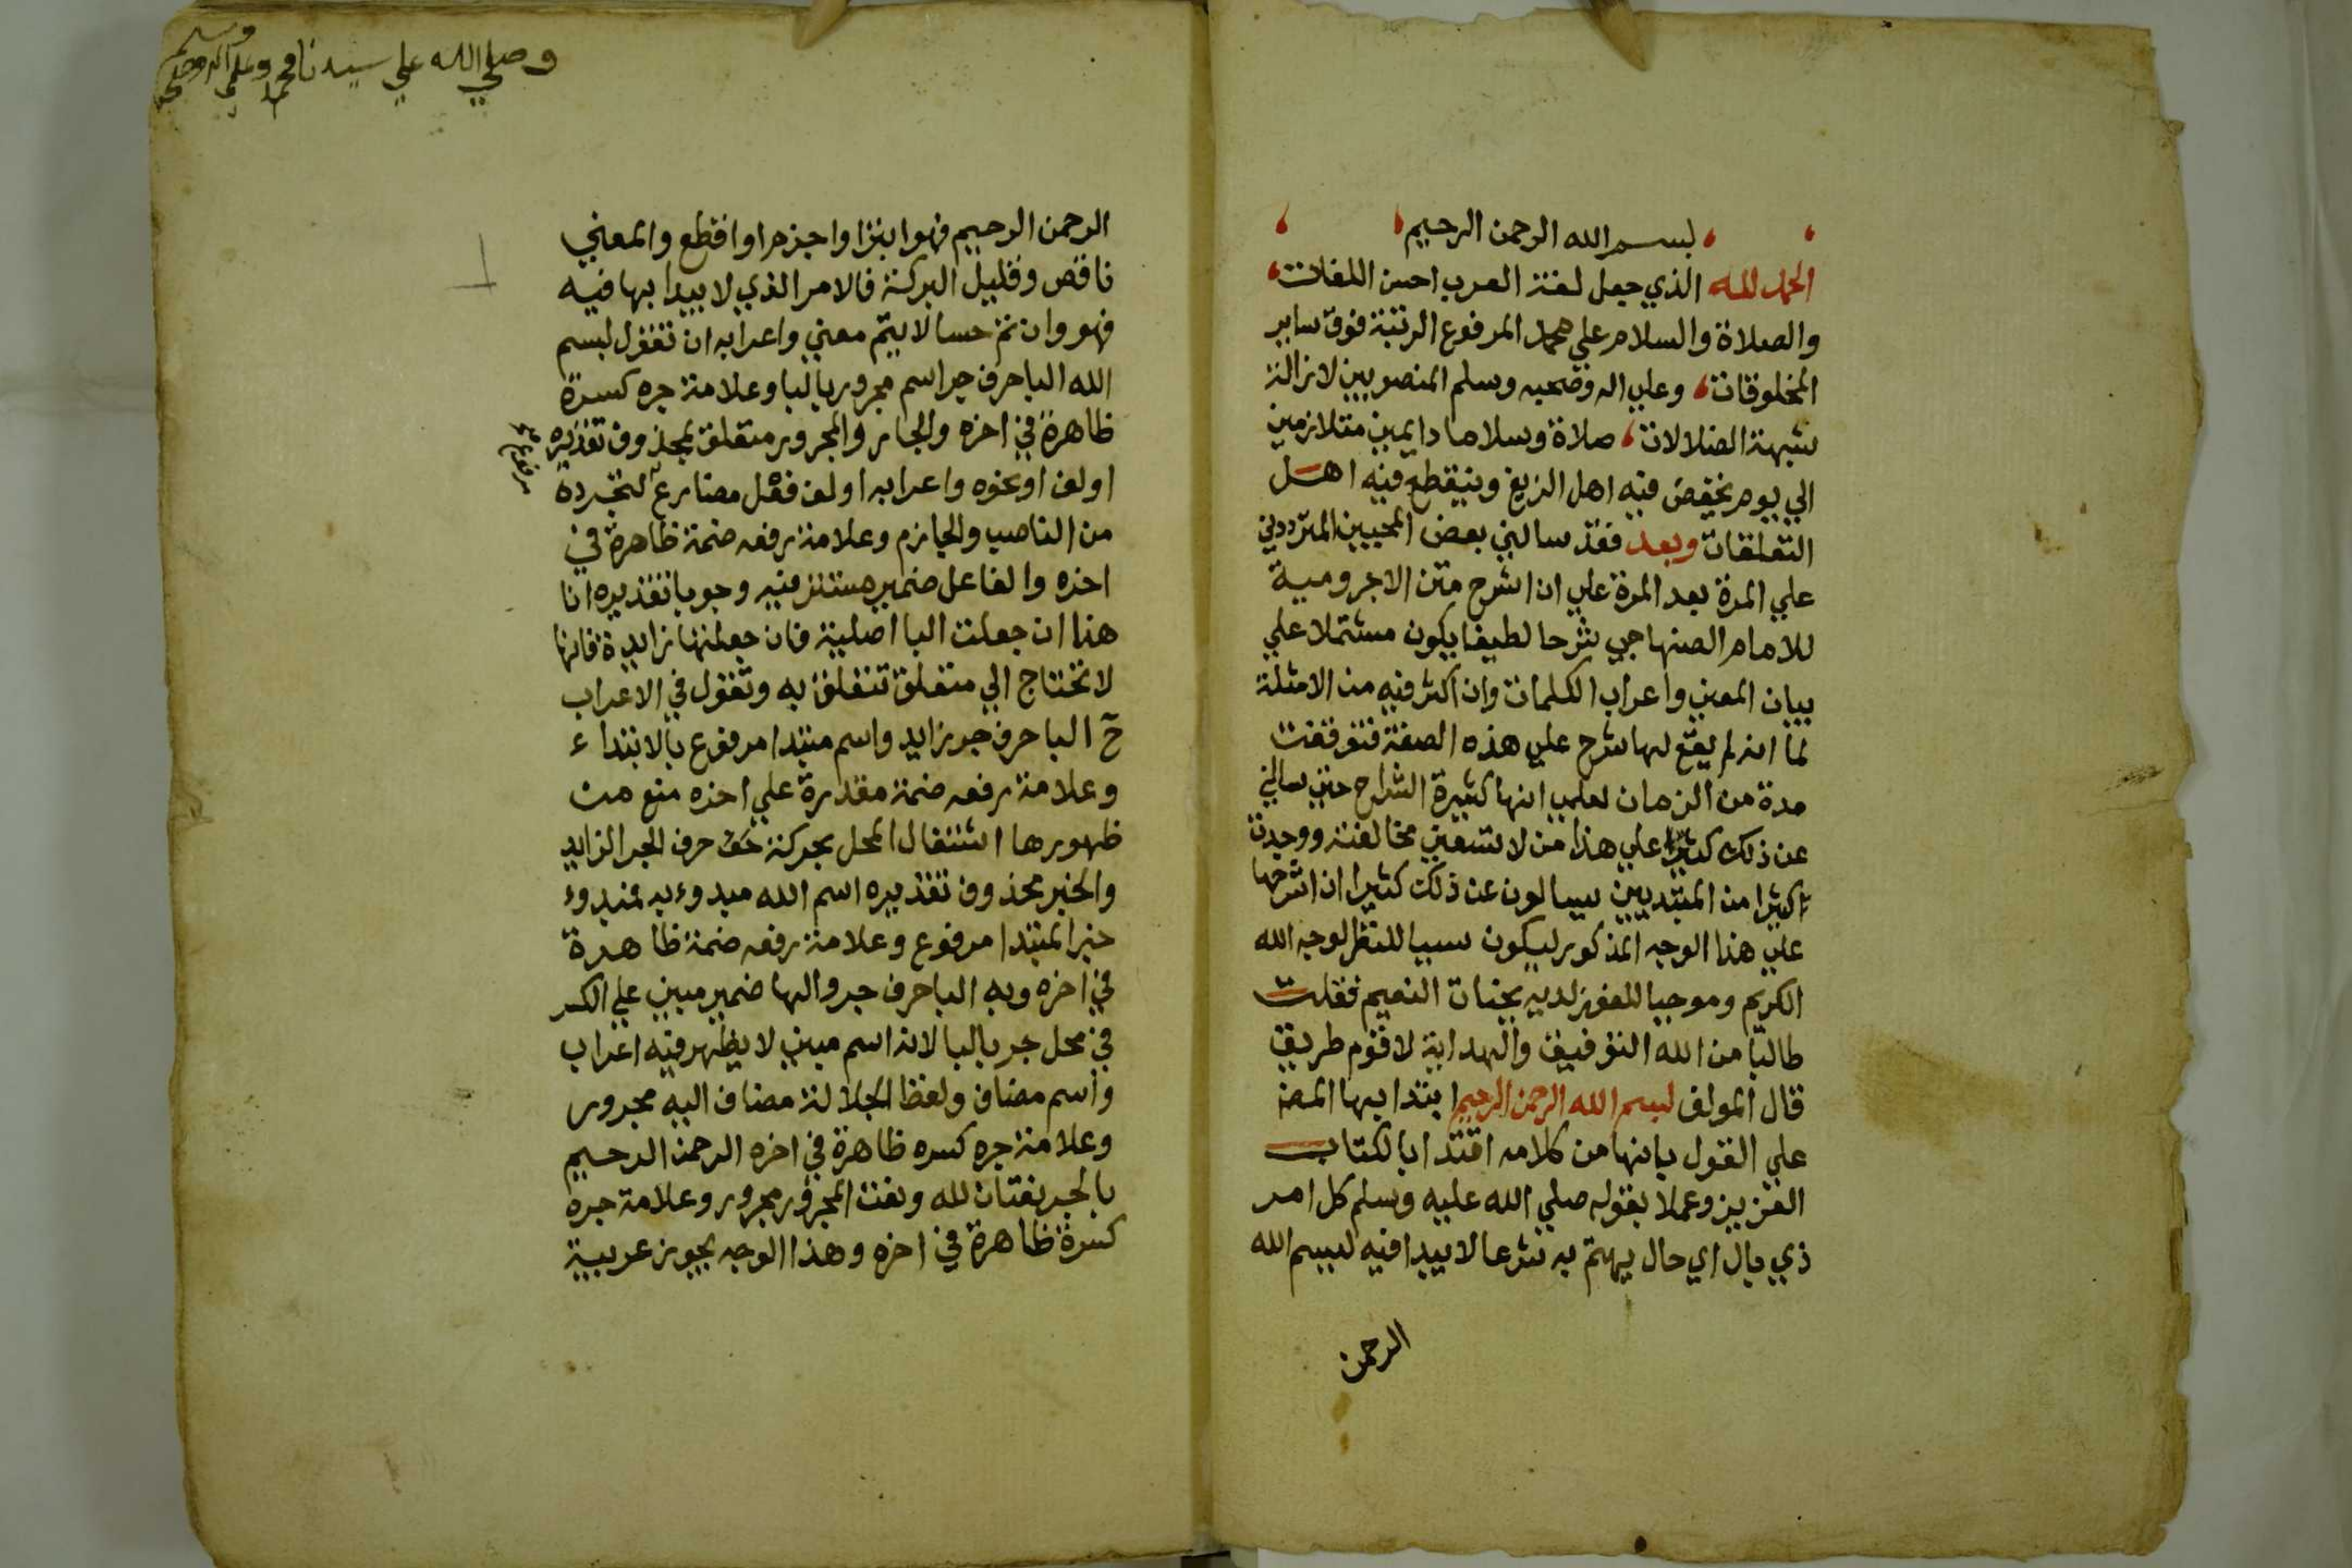 بسم الله الرحمن الرحيم
الحمد لله الذي جعل لغة العرب احسن اللغات
والصلاة والسلام علي محمد المرفوع الرتبة فوق ساير
المخلوقات وعلي اله وصحبه وسلم المنصوبين لازالة
شبهة الضلالات صلاة وسلاما دايمين متلازمين
الي يوم يخفض فيه اهل الزيغ وينقطع فيه اهل
التعلقات وبعد فقد سالني بعض المحبين المترددين
علي المرة بعد المرة علي ان اشرح متن الاجرومية
للامام الصنهاجي شرحا لطيفا يكون مشتملا علي
بيان المعني واعراب الكلمات وان اكثر فيه من الامثلة
لما انه لم يقع لها شرح علي هذه الصفة فتوقفت
مدة من الزمان لعلمي انها كثيرة الشراح حتي سالني
عن ذلك كثيرا علي هذا من لا تسعني مخالفته ووجدت
اكثرا من المبتديين يسالون عن ذلك كثيرا ان اشرحها
علي هذا الوجه المذكور ليكون سببا للنظر لوجه الله
الكريم وموجبا للفوز لديه بجنات النعيم فقلت
طالبا من الله التوفيق والهداية لاقوم طريق
قال المولف بسم الله الرحمن الرحيم ابتدا بها المص
علي القول بانها من كلامه اقتدا بالكتاب
العزيز وعملا بقوله صلي الله عليه وسلم كل امر
ذي بال اي حال يهتم به شرعا لا يبدا فيه ببسم الله
الرحمن
وصلي الله علي سيدنا محمد وعلي اله وصحبه
وسلم
الرحمن الرحيم فهو ابترا واجزم او اقطع والمعني
ناقص وقليل البركة فالامر الذي لا يبدا بها فيه
فهو وان تم حسا لا يتم معني واعرابه ان تقول بسم
الله البا حرف جر اسم مجرور بالبا وعلامة جره كسرة
ظاهرة في اخره والجار والمجرور متعلق بمحذوف تقديره
اولف او نحوه واعرابه اولف فعل مضارع لتجرده
مرفوع صح
من الناصب والجازم وعلامة رفعه ضمة ظاهرة في
اخره والفاعل ضمير مستتر فيه وجوبا تقديره انا
هذا ان جعلت البا اصلية فان جعلتها زايدة فانها
لا تحتاج الي متعلق تتعلق به وتقول في الاعراب
ح البا حرف جر زايد واسم مبتدا مرفوع بالابتداء
وعلامة رفعه ضمة مقدرة علي اخره منع من
ظهورها اشتغال المحل بحركة حرف الجر الزايد
والخبر محذوف تقديره اسم الله مبدوء به فمبدوء
خبر المبتدا مرفوع وعلامة رفعه ضمة ظاهرة
في اخره وبه البا حرف جر والها ضمير مبني علي الكسر
في محل جر بالبا لانه اسم مبني لا يظهر فيه اعراب
واسم مضاف ولفظ الجلالة مضاف اليه مجرور
وعلامة جره كسره ظاهرة في اخره الرحمن الرحيم
بالجر نعتان لله ونعت المجرور مجرور وعلامة جره
كسرة ظاهرة في اخره وهذا الوجه يجوز عربية